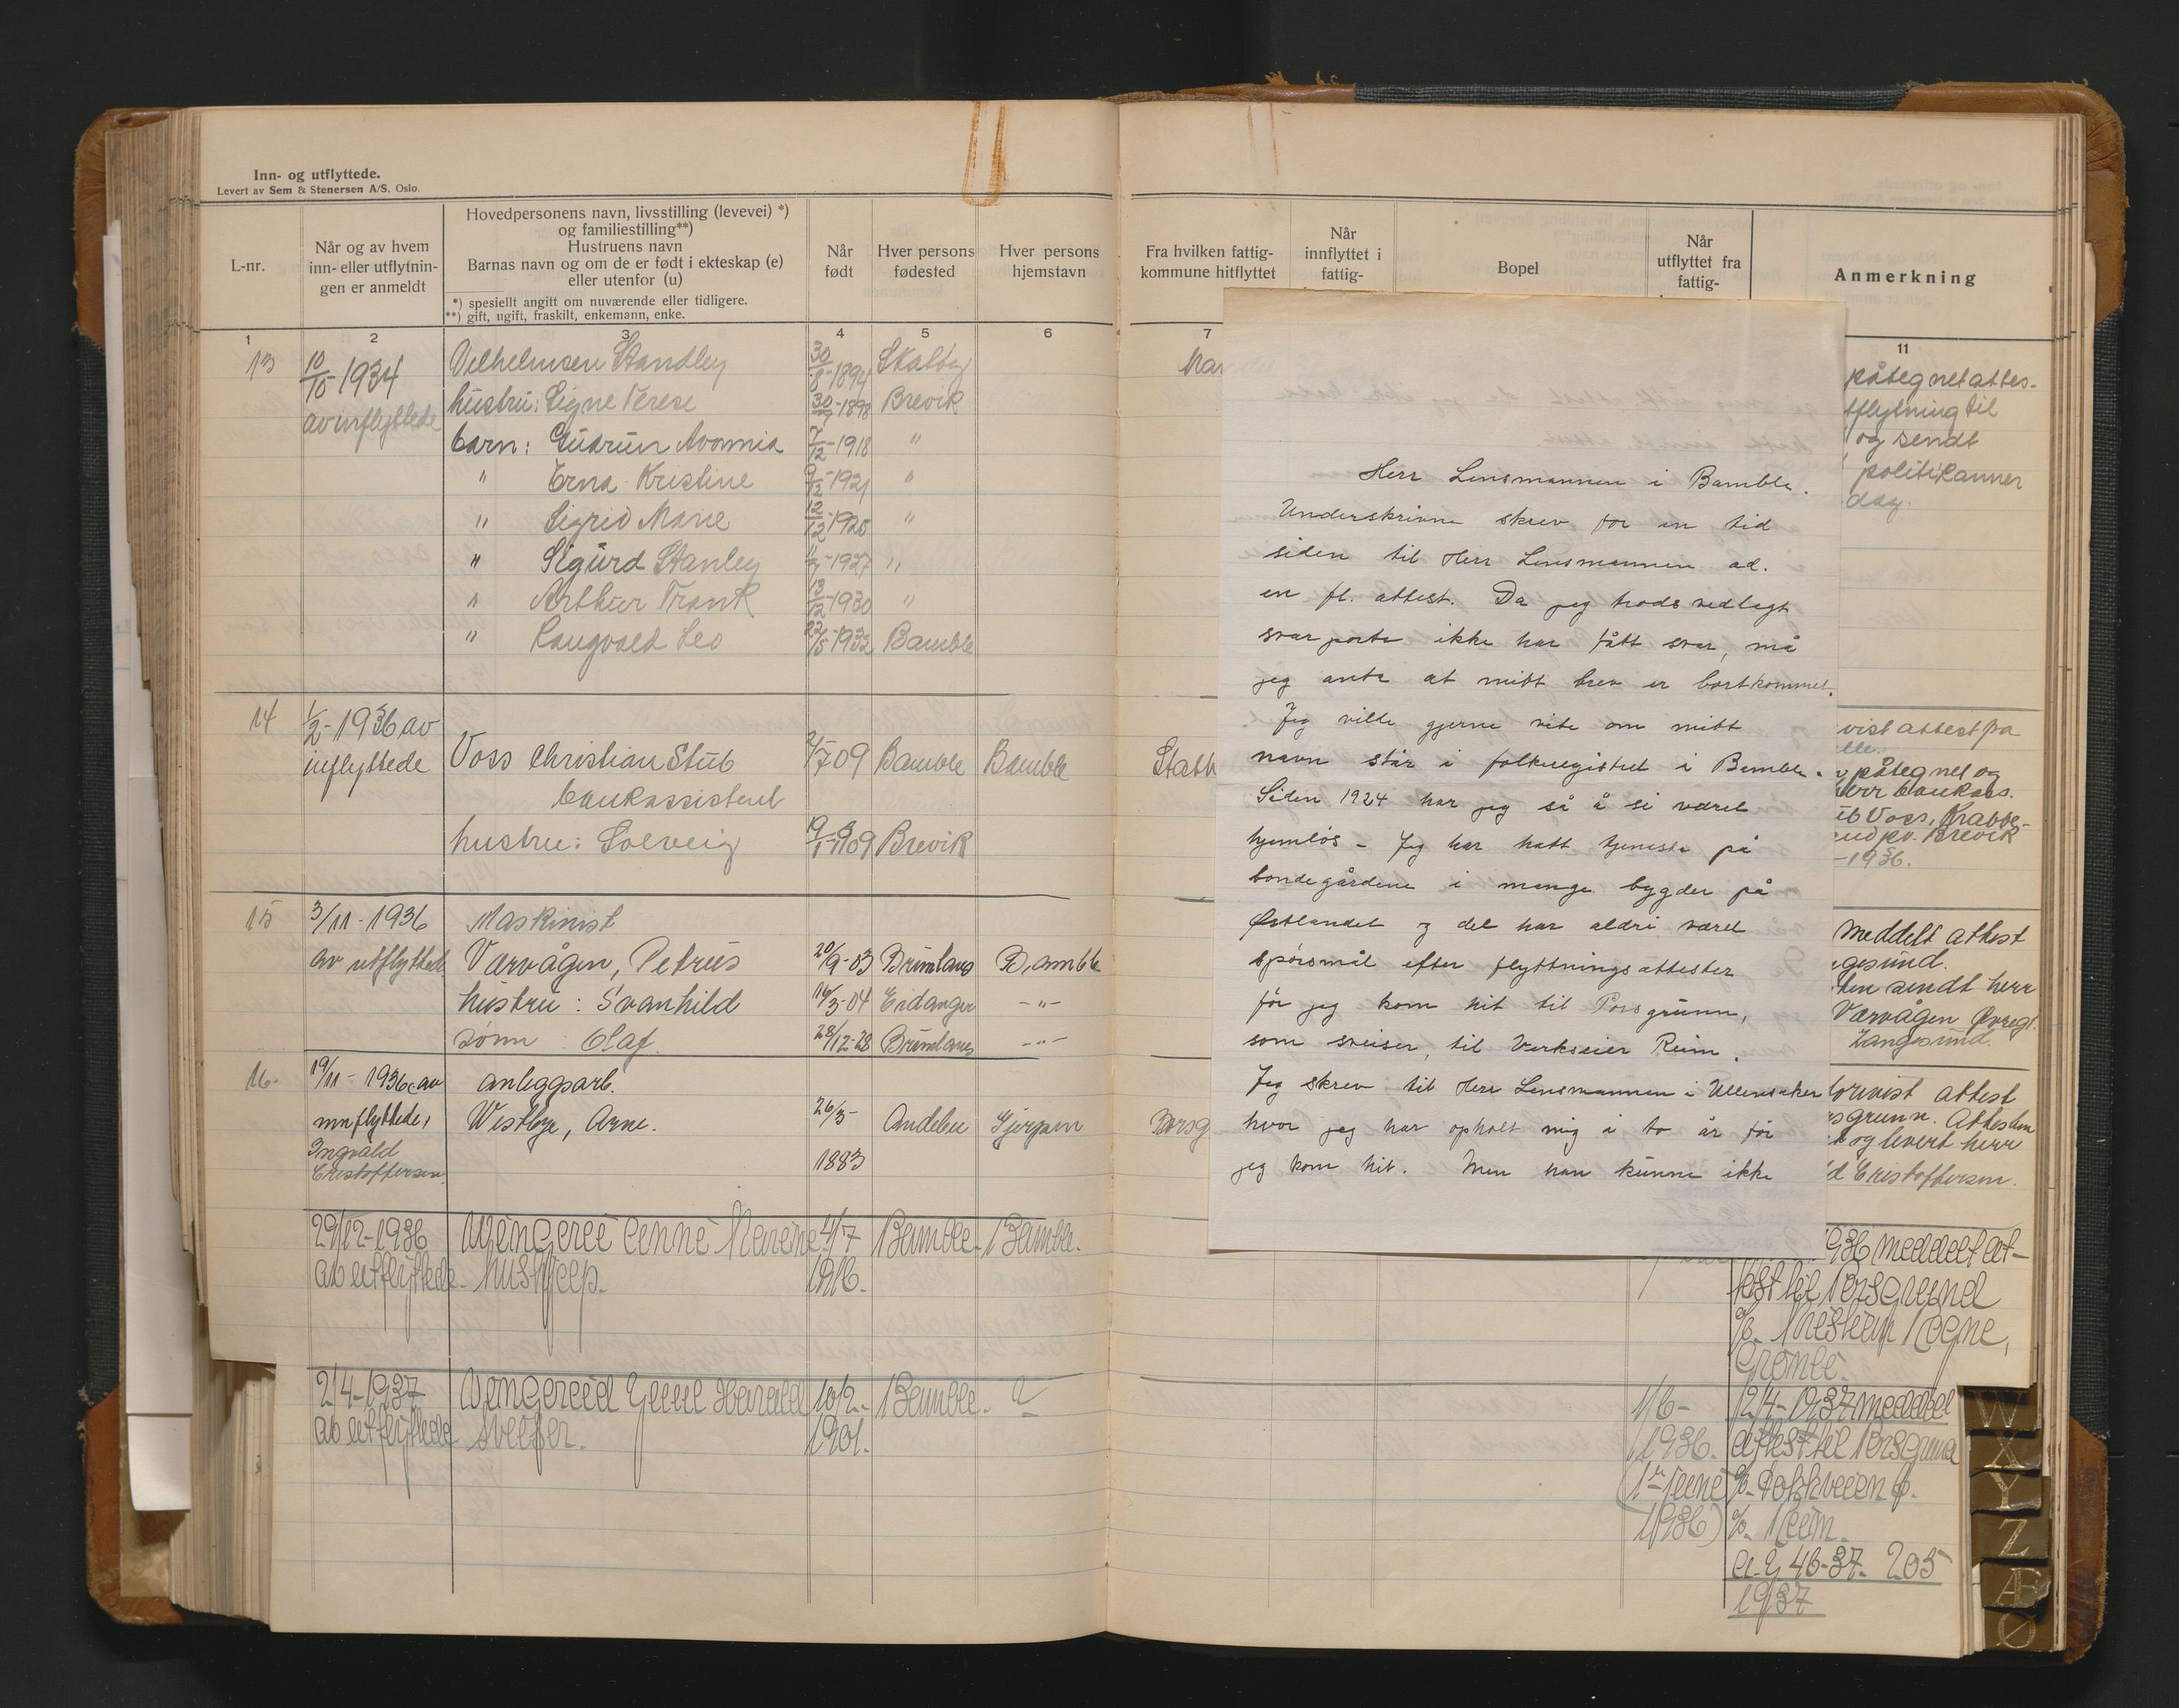 Inn- og utflyttede.
Levert av Sem & Stenersen A/S. Oslo.
L-nr.
Når og av hvem
inn- eller utflytnin-
gen er anmeldt
Hovedpersonens navn, livsstilling (levevei) *)
og familiestilling**)
Hustruens navn
Barnas navn og om de er født i ekteskap (e)
eller utenfor (u)
*) spesiellt angitt om nuværende eller tidligere.
**) gift, ugift, fraskilt, enkemann, enke.
Når
født
Hver persons
fødested
Hver persons
hjemstavn
1 2 3 4 5 6
13 10/10-1934 Vilhelmsen Standley 30/8-1894 Skatöy
av inflyttede hustru: Signe Terese 30/7-1898 Brevik
barn: Gudrun Avonnia 7/12-1918 "
" Erna Kristine 9/12-1921 "
" Sigrid Marie 12/12-1925 "
" Sigurd Stanley -1927 "
" Arthur Frank 13/12-1930 "
" Raugvald Leo 22/5-1932 Bamble
14 1/2-1936 av
inflyttede Voss Christian Stub 2/7 09 Bamble Bamble
bankassistent
hustru: Solveig 1909 Brevik
15 3/11-1936 Maskinist
av utflyttede Varvågen, Petrus 20/9-03 Brunlanes Bamble
hustru: Svanhild 16/3-04 Eidanger -"-
sønn: Olaf. 28/12-28 Brunlanes -"-
16. 19/11-1936 av anleggsarb.
innflyttede, Westbye, Arne. 26/3- Andebu Gjerpen
Ingvald 1883
Cristoffersen.
29/12-1936 Marene 4/7 Bamble. Bamble.
av utflyttede. 1916.
2/4-1937 Vengereid Harald 10/2- Bamble. ?
av utflyttede 1901.
Fra hvilken fattig-
kommune hitflyttet
Når
innflyttet i
fattig-
Bopel
Når
utflyttet fra
fattig-
Anmerkning
7 11
Herr Lensmannen i Bamble.
Underskrivne skrev for en tid
siden til Herr Lensmannen ad.
en fl. attest. Da jeg trods vedlagt
svarporto ikke har fått svar, må
jeg anta at mitt brev er bortkommet.
Jeg ville gjerne vite om mitt
navn står i folkeregistret i Bamble.
Siden 1924 har jeg så å si været
hjemløs - Jeg har hatt tjeneste på
bondegårdene i mange bygder på
Østlandet og det har aldri været
spørsmål efter flyttningsattester
før jeg kom hit til Porsgrunn,
som sveiser, til Verkseier Reim.
Jeg skrev til Herr Lensmannen i Ullensaker
hvor jeg har opholt mig i to år før
jeg kom hit. Men han kunne ikke
Mar
Stath
Porsg
påtegnet attes-
tflytning til
og sendt
politikammer
dag.
vist attest fra
påtegnet og
herr bankass.
ub Voss, Krabbe-
Brevik
-1936.
meddelt attest
gesund.
ten sendt herr
Varvågen Øvregt.
Langesund.
forevist attest
sgrunn. Attesten
t og levert herr
d Cristoffersen.
936 meddelt at-
test til Porsgrund
Grønli.
1/6- 12/4-1937 meddel
1936. attest til Porsgrund
1936) % Reim.
46-37. 205
1937
W
X
Y
Z
Æ
Ø